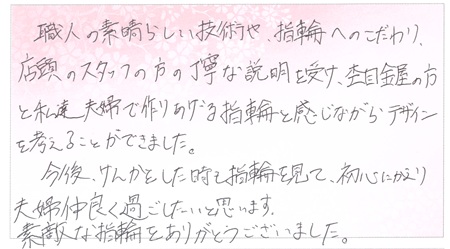 職人の素晴らしい技術や、指輪へのこだわり、
店頭のスタッフの方の丁寧な説明を受け、杢目金屋の方
と私達夫婦で作りあげる指輪と感じながらデザイン
を考えることができました。
今後、けんかとした時も指輪を見て、初心にかえり
夫婦仲良く過ごしたいと思います。
素敵な指輪をありがとうございました。